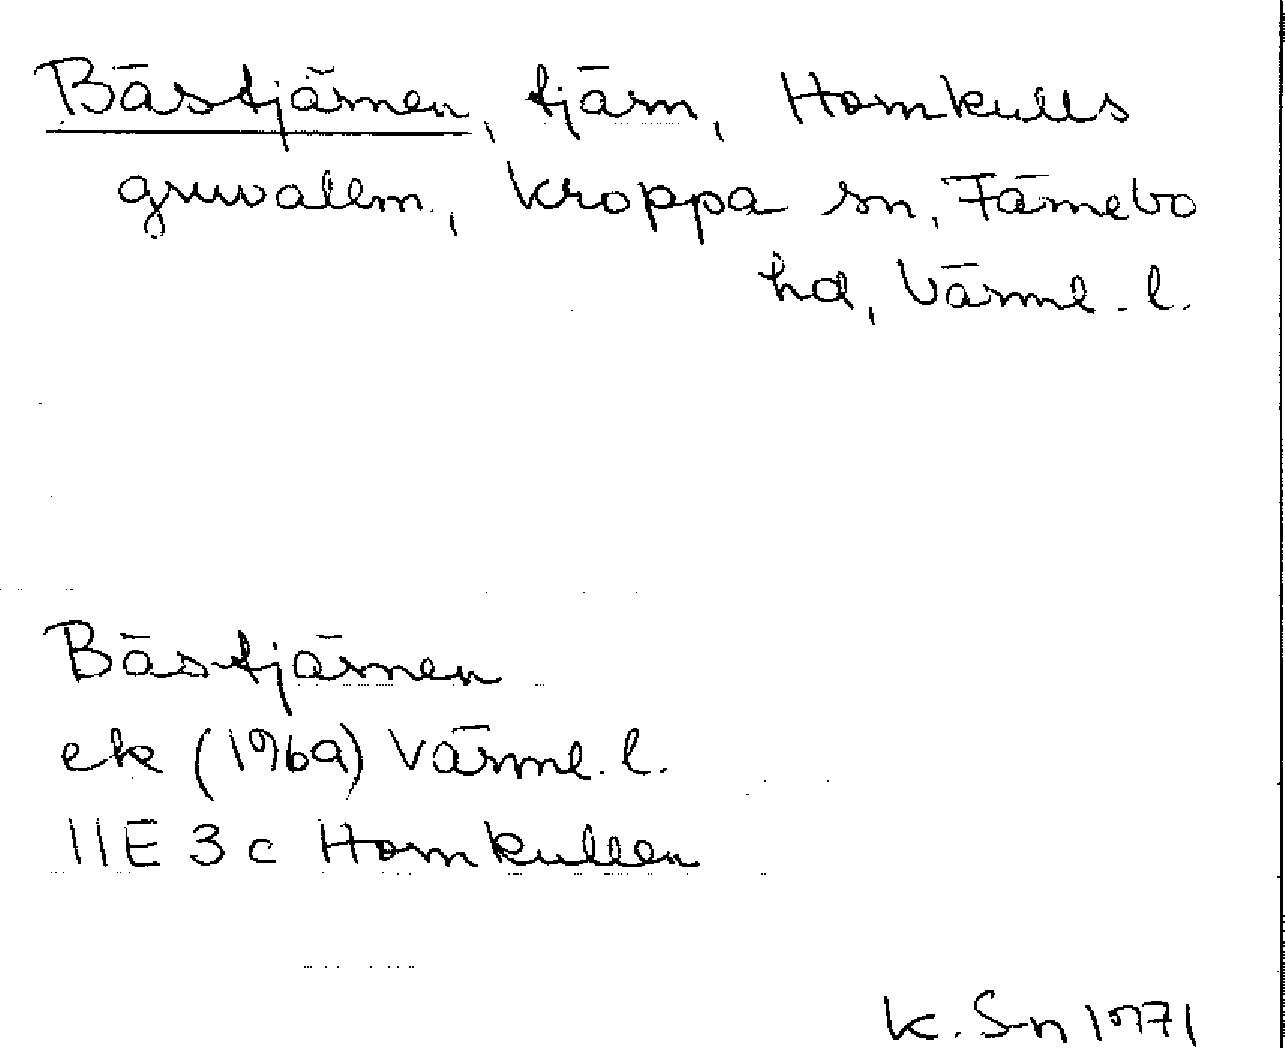 Bästjärnen, tjärn, Hornkulls
gruvallm., Kroppa sn, Färnebo
hd, Värml. l.
Bästjärnen
ek (1969) Värml. l.
11E 3c Hornkullen
K. Sn 1971